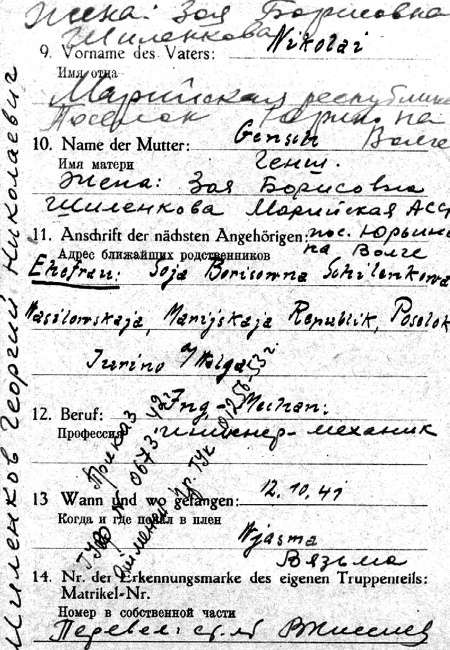 Жена: Зоя Борисовна
Шиленкова
9. Vorname des Vaters: Nikolai
Имя отца
Марийская республика
Поселок Юрино на
Волге
10. Name der Mutter: Gensch
Имя матери Генш.
Жена: Зоя Борисовна
Шиленкова Марийская АССР
11. Anschrift der nächsten Angehörigen: пос. Юрино
Адрес ближайших родственников на Волге
Ehefrau: Soja Borisowna Schilenkowa
Wasilowskaja, Marijskaja Republik, Posolok
Jurino a/Wolga
12. Beruf: Ing.-Mechan.
Профессия Инженер-механик
Приказ
ГУФ № 0673
13 Wann und wo gefangen: 12.10.41
Когда и где попал в плен
Wjasma
Вязьма
14. Nr. der Erkennungsmarke des eigenen Truppenteils:
Matrikel-Nr.
Номер в собственной части
Перевел: ст. л-т
Шиленков Георгий Николаевич